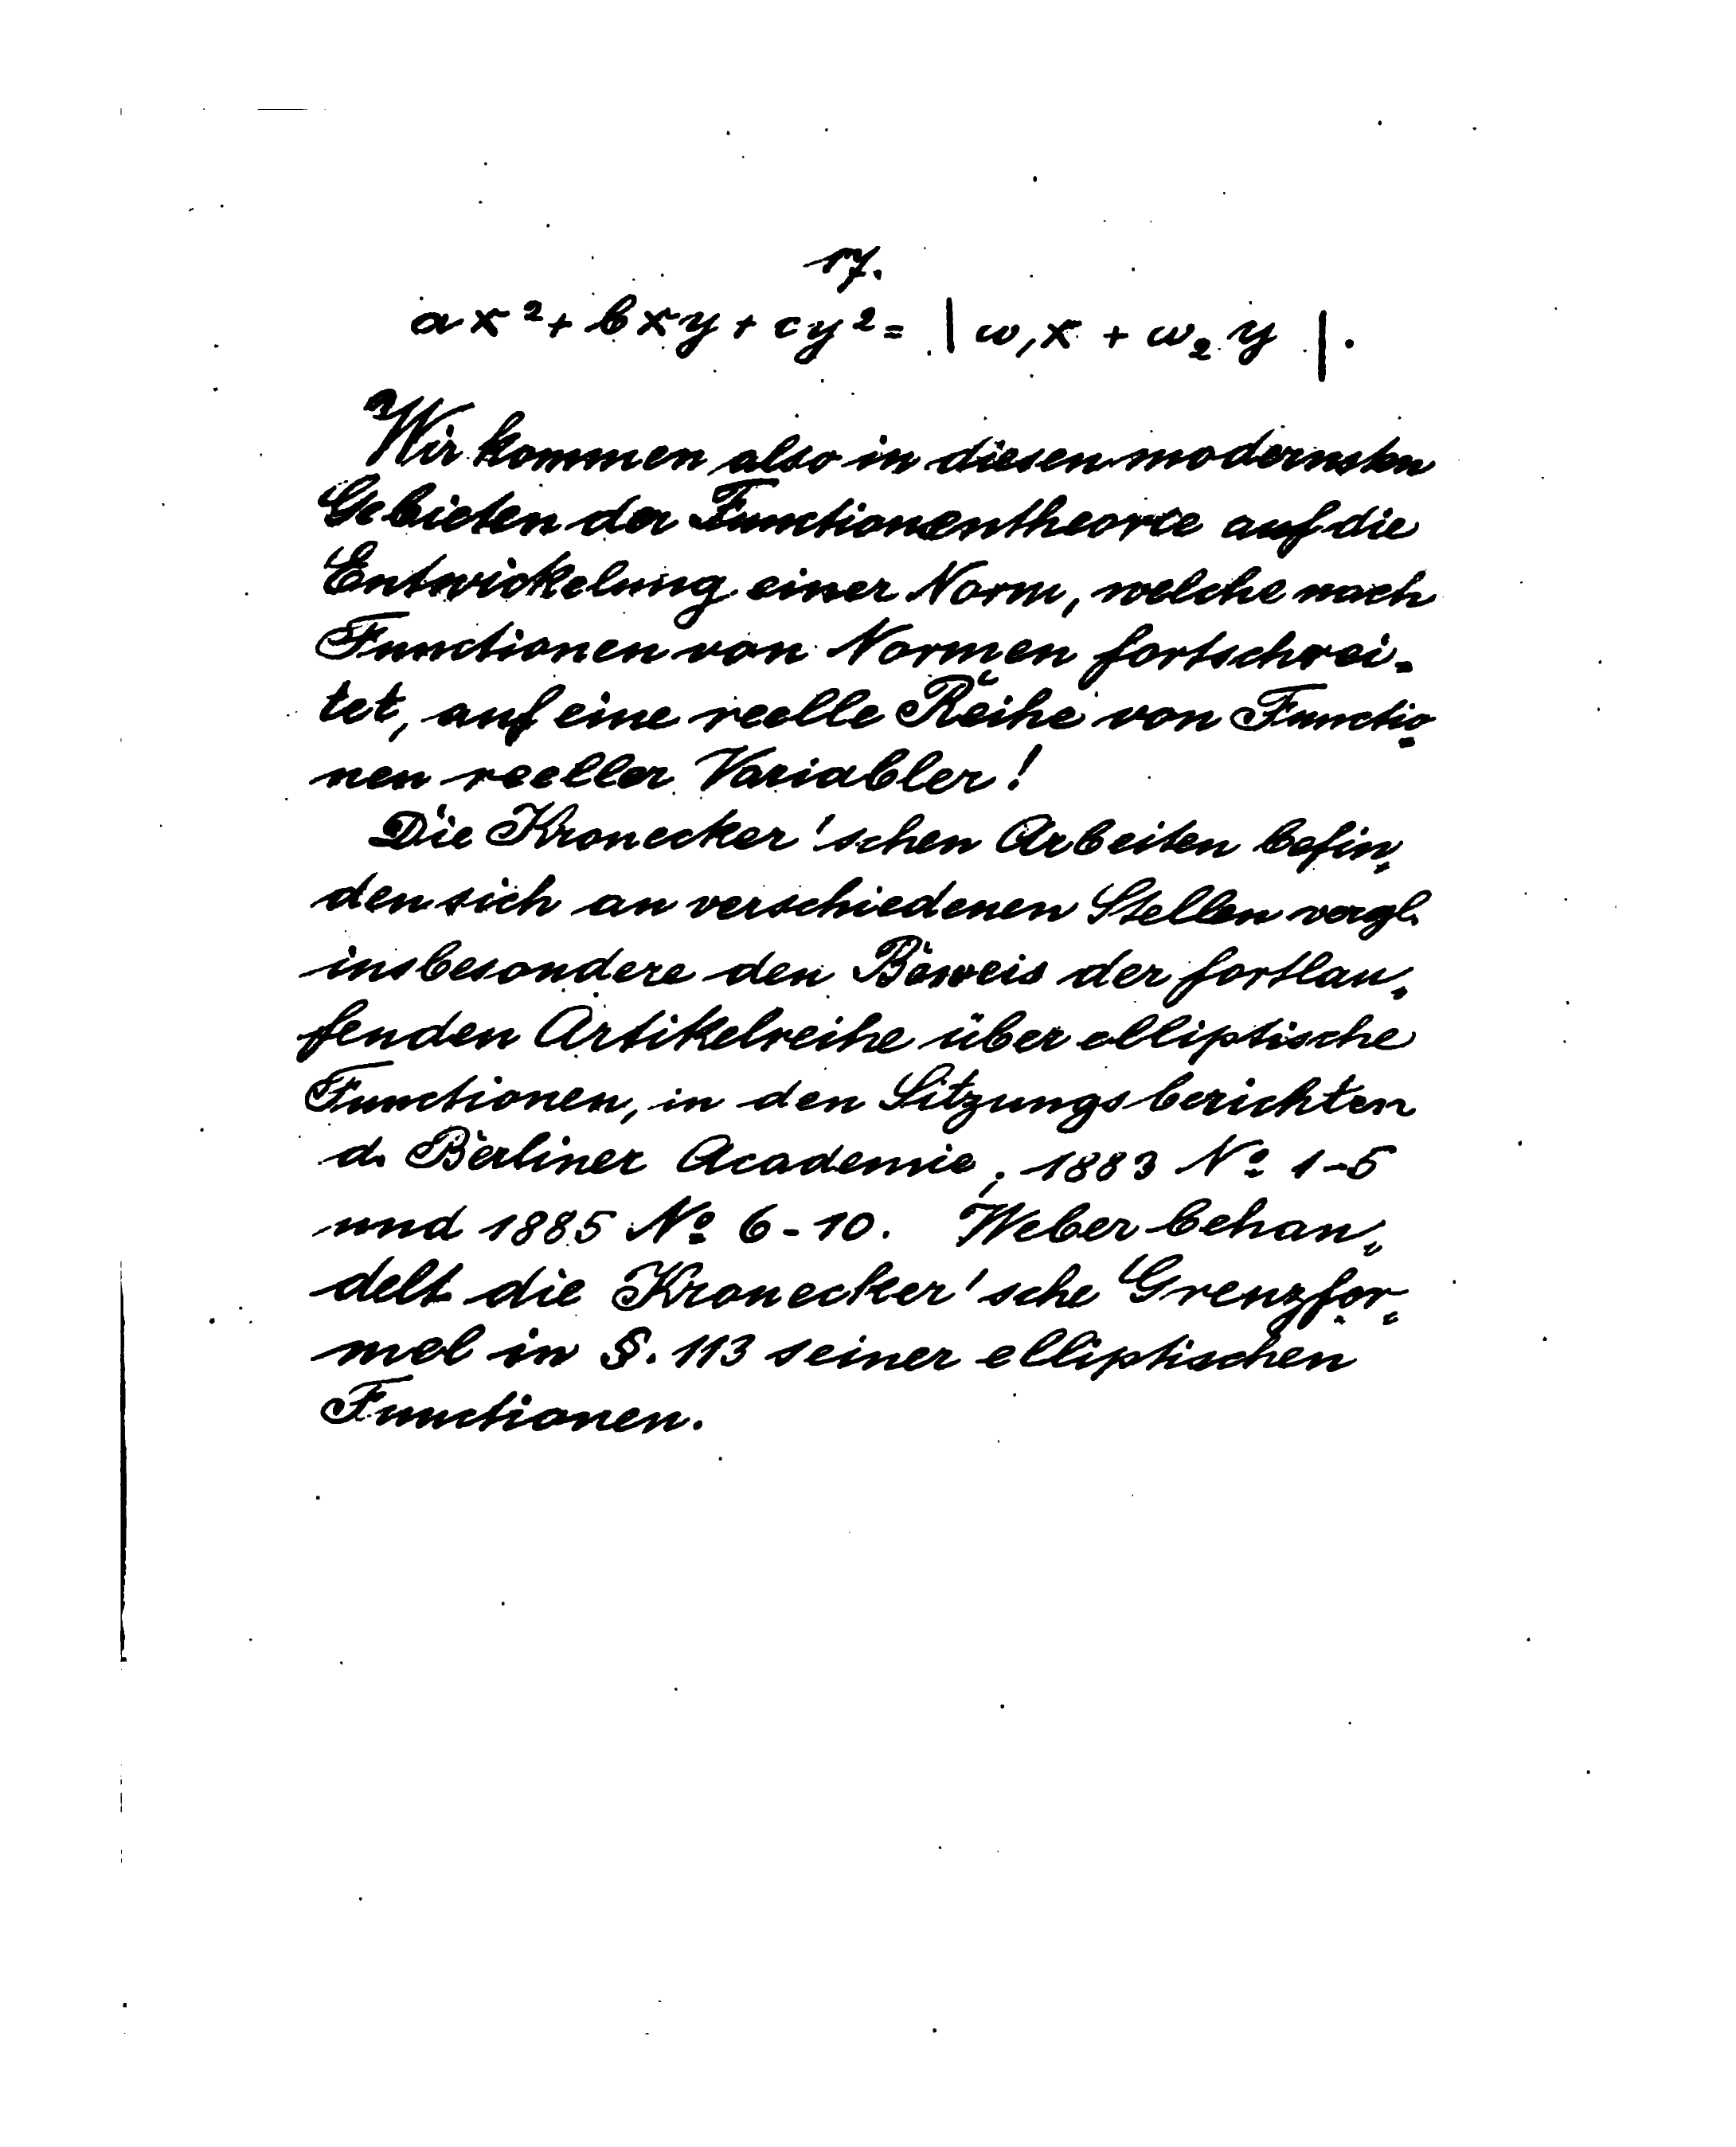 17.
ax² + bxy + cy² = |ω₁x + ω₂y|.
Wir kommen also in diesen modernsten
Gebieten der Functionentheorie auf die
Entwickelung einer Norm, welche nach
Functionen von Normen fortschrei-
tet, auf eine reelle Reihe von Functio-
nen reeller Variabler!
Die Kronecker'schen Arbeiten befin-
den sich an verschiedenen Stellen vergl.
insbesondere den Beweis der fortlau-
fenden Artikelreihe über elliptische
Functionen, in den Sitzungsberichten
d. Berliner Academie, 1883 Nº 1-5
und 1885 Nº 6-10. Weber behan-
delt die Kronecker'sche Grenzfor-
mel in §. 113 seiner elliptischen
Functionen.